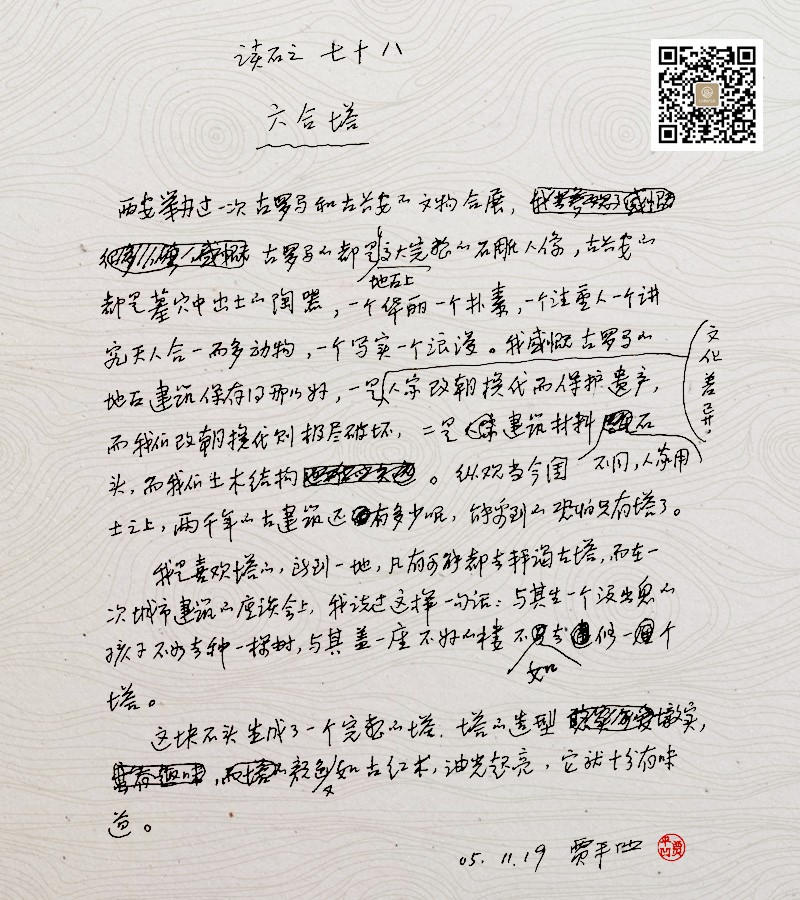 读石之 七十八
六合塔
西安举办过一次古罗马和古长安的文物合展,
古罗马的都是高大完整的石雕人像,古长安的
地面上
都是墓穴中出土的陶器,一个华丽一个朴素,一个注重人一个讲
究天人合一而多动物,一个写实一个浪漫。我感慨古罗马的
文化差异!
地面建筑保存得那么好,一是人家改朝换代而保护遗产,
而我们改朝换代则极尽破坏,二是建筑材料石
头,而我们土木结构。纵观当今国 不同,人家用
土之上,两千年的古建筑还有多少呢,能看到的恐怕只有塔了。
我是喜欢塔的,每到一地,凡有可能都去拜谒古塔,而在一
次城市建筑的座谈会上,我说过这样一句话:与其生一个没出息的
孩子不如去种一棵树,与其盖一座不好的楼 不去修一个
如
塔。
这块石头生成了一个完整的塔. 塔的造型 墩实,
,颜色又如古红木,油光起亮,它就十分有味
道。
05.11.19 贾平凹
平凹 贾